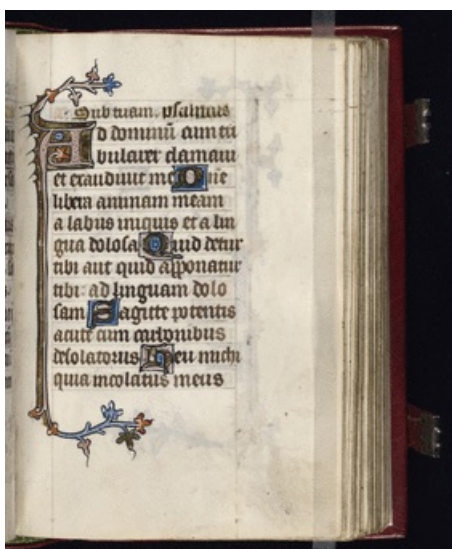 Sub tuam. psalmus
Ad dominū cum tri
bularer clamaui
et exaudiuit me Dne
libera animam meam
a labiis iniquis et a lin
gua dolosa Quid detur
tibi aut quid apponatur
tibi: ad linguam dolo
sam Sagitte potentis
acute cum carbonibus
desolatoriis Heu michi
quia incolatus meus